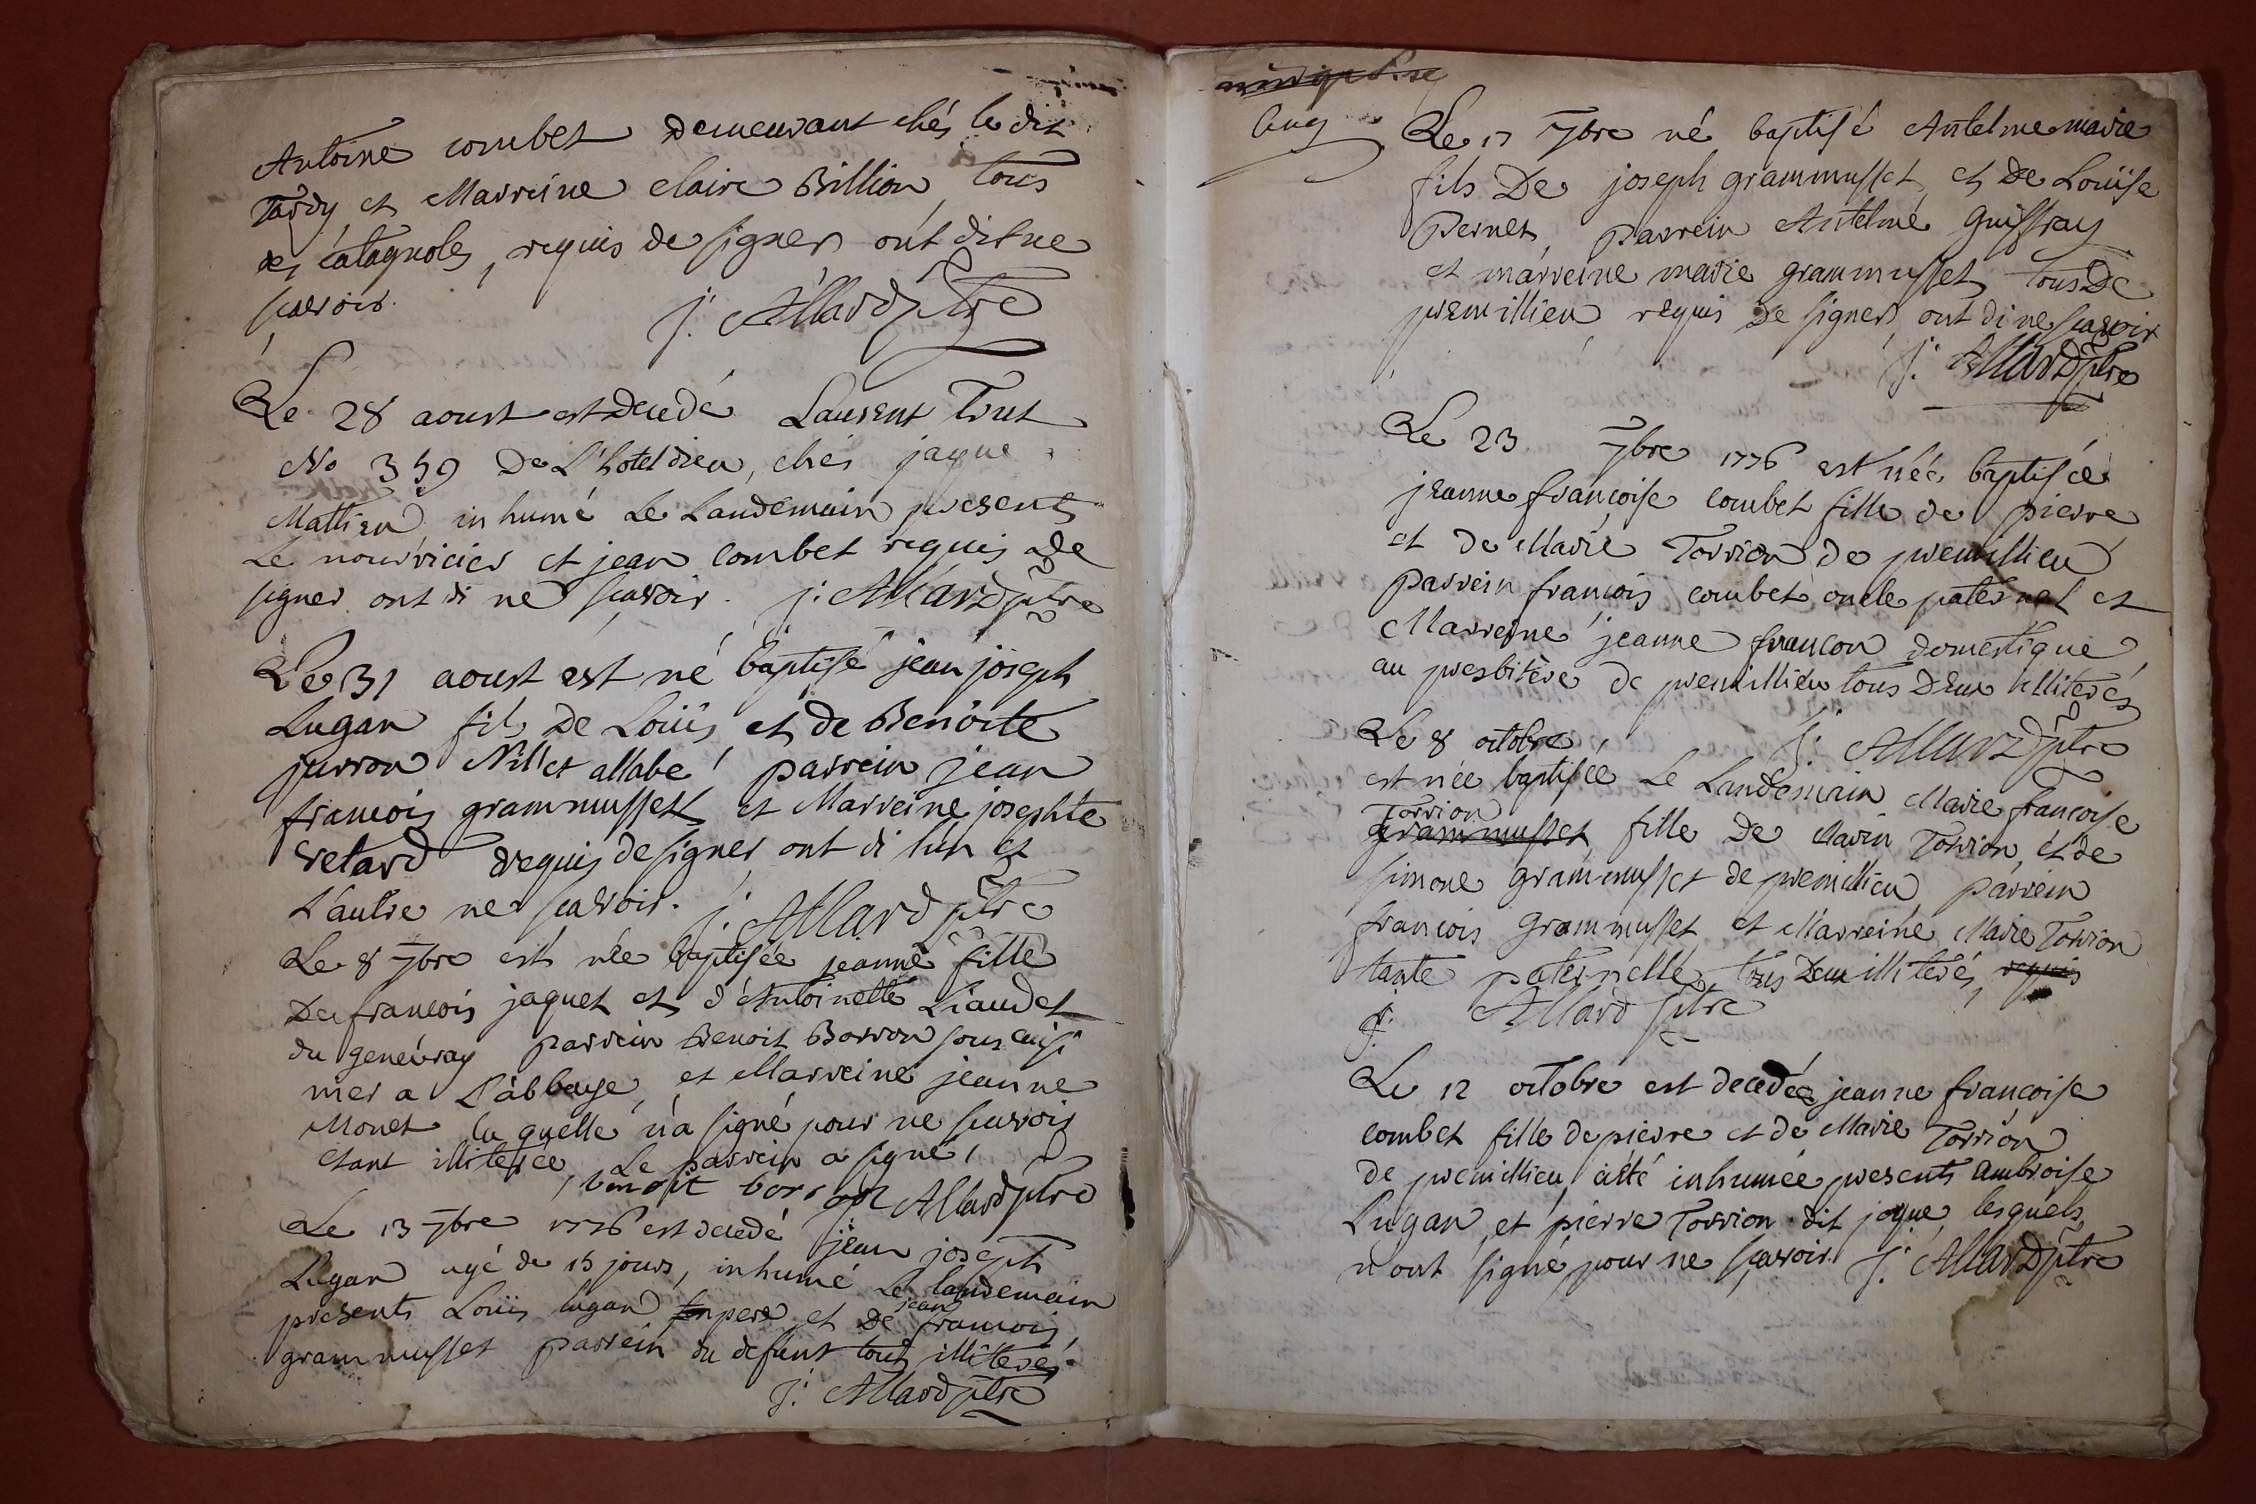 Antoine combet demeurant chés le dit
Tardy et Marreine claire Billion, tous
des catagnoles, requis de signer ont dit ne
scavoir.
j: Allard ptre
Le 28 aoust est decedé Laurent Tout
No 359 De L'hotel dieu, chés jaque
Mathieu inhumé Le Landemain presents
Le nourricier et jean combet requis de
signer ont di ne scavoir. j: Allard ptre
Le 31 aoust est né baptisé jean joseph
Lugan fils De Loüis et de Benoite
jurron parrein jean
francois grammusset et Marreine josephte
retard requis de signer ont di l'un et
L'autre ne scavoir. j: Allard ptre
Le 8 7bre est née baptisée jeanne fille
De francois jaquet et d'Antoinette Liaudet
du genevray parrein Benoit Borron sous cuisi
nier a L'abbaye, et Marreine jeanne
Monet la quelle n'a signé pour ne scavoir
etant illiterée, Le parrein a signé,
benoit borron Allard ptre
Le 13 7bre 1776 est decedé jean joseph
Lugan agé de 15 jours, inhumé Le landemain
presents Loüis lugan son pere et De jean francois
grammusset parrein du defunt tous illiterés.
j: Allard ptre
Le 17 7bre né baptisé Antelme marie
fils De joseph grammusset et De Loüise
Pernet, parrein Antelme Guiffray
et marreine marie grammusset tous De
premillieu requis De signer ont di ne scavoir
j: Allard ptre
Le 23 7bre 1776 est née baptisée
jeanne francoise combet fille de pierre
et de Marie Torrion de premillieu
parrein francois combet oncle paternel et
Marreine jeanne francon domestique
au presbitère de premillieu tous Deux illiterés
j: Allard ptre
Le 8 octobre
est née baptisée Le Landemain Marie francoise
Torrion
grammusset fille De Marin Torrion, et de
simone grammusset de premillieu parrein
francois grammusset et Marreine Marie Torrion
tante paternelle, tous Deux illiterés, requis
j: Allard ptre
Le 12 octobre est decedée jeanne francoise
combet fille de pierre et de Marie Torrion
de premillieu a été inhumée presents ambroise
Lugan, et pierre Torrion dit joque, lesquels
n'ont signé pour ne scavoir. j: Allard ptre